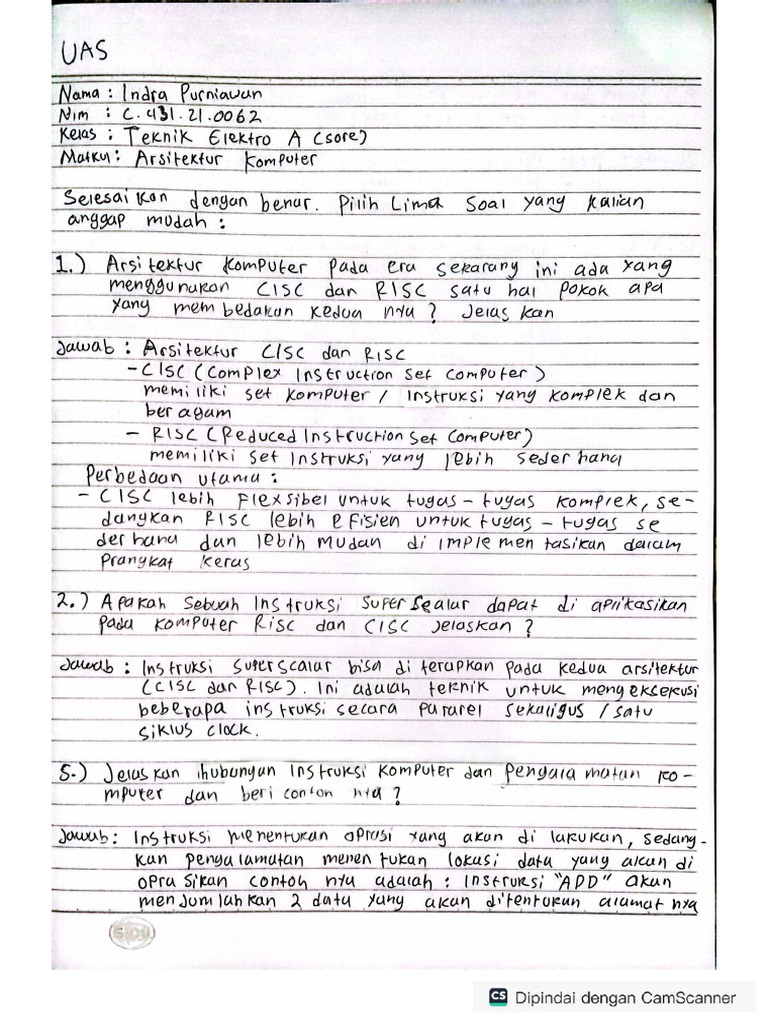 UAS
Nama : Indra Purniawan
Nim : C.431.21.0062
Kelas : Teknik Elektro A (sore)
Matkul : Arsitektur Komputer
Selesai kan dengan benar. Pilih Lima Soal yang kalian
anggap mudah :
1.) Arsitektur Komputer pada era sekarang ini ada yang
menggunakan CISC dan RISC satu hal pokok apa
yang mem bedakan kedua nya ? Jelas kan
Jawab : Arsitektur CISC dan RISC
- CISC (Complex Instruction Set Computer)
memiliki set komputer / instruksi yang komplek dan
ber agam
- RISC (Reduced Instruction Set Computer)
memiliki set instruksi yang lebih seder hana
Perbedaan utama :
- CISC lebih Flexsibel untuk tugas - tugas komplek, se-
dangkan RISC lebih efisien untuk tugas - tugas se
der hana dan lebih mudah di implemen tasikan dalam
Prangkat keras
2.) Apakah Sebuah Instruksi Super Scalar dapat di aplikasikan
pada komputer Risc dan CISC jelaskan ?
Jawab : Instruksi Superscalar bisa di terapkan pada kedua arsitektur
(CISC dan RISC). Ini adalah teknik untuk mengeksekusi
beberapa instruksi secara pararel sekaligus / satu
siklus clock.
5.) Jelas kan hubungan Instruksi Komputer dan Pengala matan ko-
mputer dan beri contoh nya ?
Jawab : Instruksi menentukan oprasi yang akan di lakukan, sedang-
kan pengalamatan menen tukan lokasi data yang akan di
opra sikan contoh nya adalah : Instruksi "ADD" akan
menjumlahkan 2 data yang akan ditentukan alamat nya
SIDU
CS Dipindai dengan CamScanner